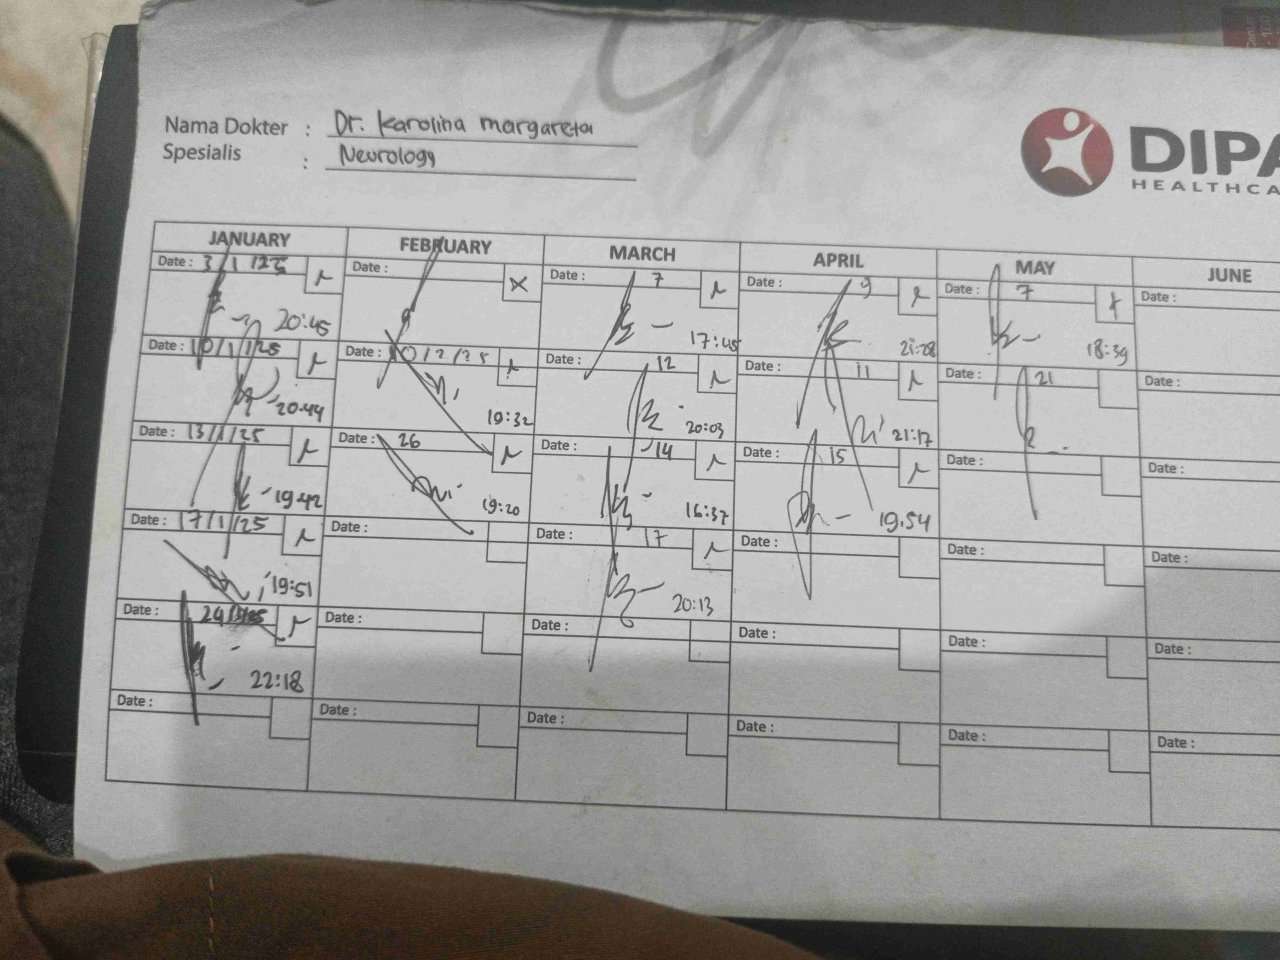 Nama Dokter : Dr. Karolina margareta
Spesialis : Neurology
DIPA
HEALTHCA
JANUARY FEBRUARY MARCH APRIL MAY JUNE
Date : 3/1/25 Date : Date : 7 Date : 9 Date : 7 Date :
20:45 17:45 21:28 18:39
Date : 10/1/25 Date : 10/2/25 Date : 12 Date : 11 Date : 21 Date :
20:44 19:32 20:03 21:17
Date : 13/1/25 Date : 26 Date : 14 Date : 15 Date : Date :
19:42 19:20 16:37 19.54
Date : 17/1/25 Date : Date : 17 Date : Date : Date :
19:51 20:13
Date : Date : Date : Date : Date : Date :
22:18
Date : Date : Date : Date : Date : Date :